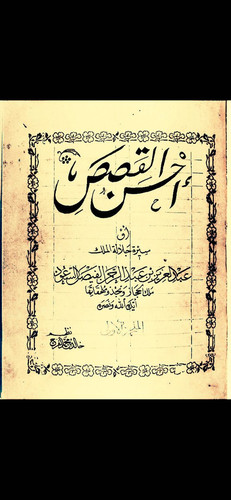 أحسن القصص
أو
سيرة جلالة الملك
عبد العزيز بن عبد الرحمن الفيصل آل سعود
ملك الحجاز ونجد وملحقاتها
أيده الله ونصره
نظم
خالد بن محمد الفرج